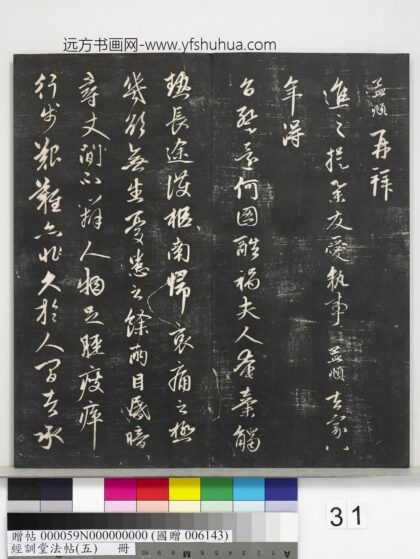 远方书画网-www.yfshuhua.com
孟頫再拜
進之提舉友愛執事孟頫去家八
年得
旨暫還何圖酷禍夫人奄棄觸
熱長途護柩南歸哀痛之極
幾欲無生憂患之餘兩目昏暗
尋丈間不辨人物足脛瘦瘁
行步艱難亦非久於人間者承
31
贈帖 000059N000000000 (國贈 006143)
經訓堂法帖(五) 冊